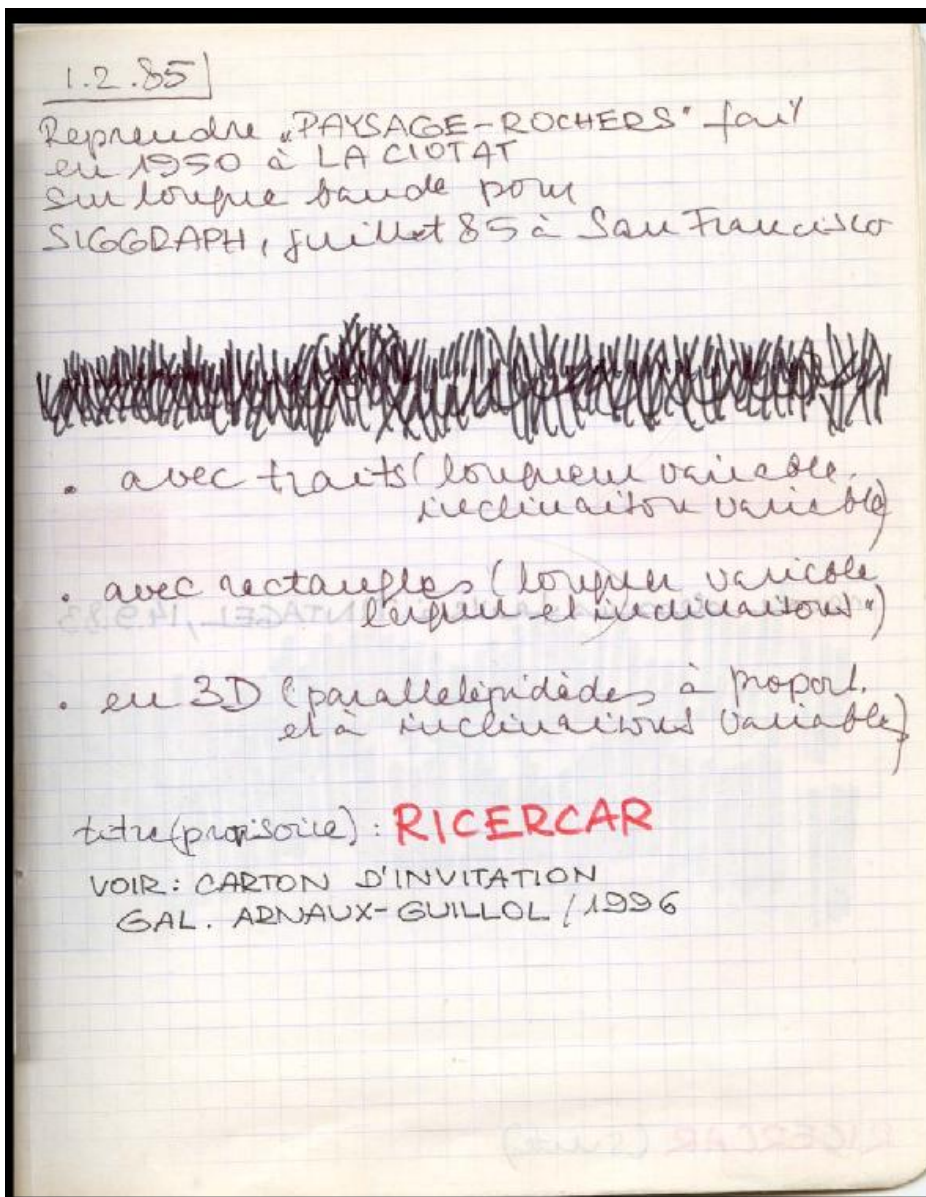 1.2.85
Reprendre „PAYSAGE-ROCHERS" fait
en 1950 à LA CIOTAT
sur longue bande pour
SIGGRAPH, juillet 85 à San Francisco
• avec traits (longueur variable,
inclinaison variable)
• avec rectangles (longueur variable,
largeur et inclinaisons ")
• en 3D (parallelépidèdes à proport.
et à inclinaisons variable)
titre (provisoire) : RICERCAR
VOIR : CARTON D'INVITATION
GAL. ARNAUX-GUILLOL / 1996
RICERCAR (suite)